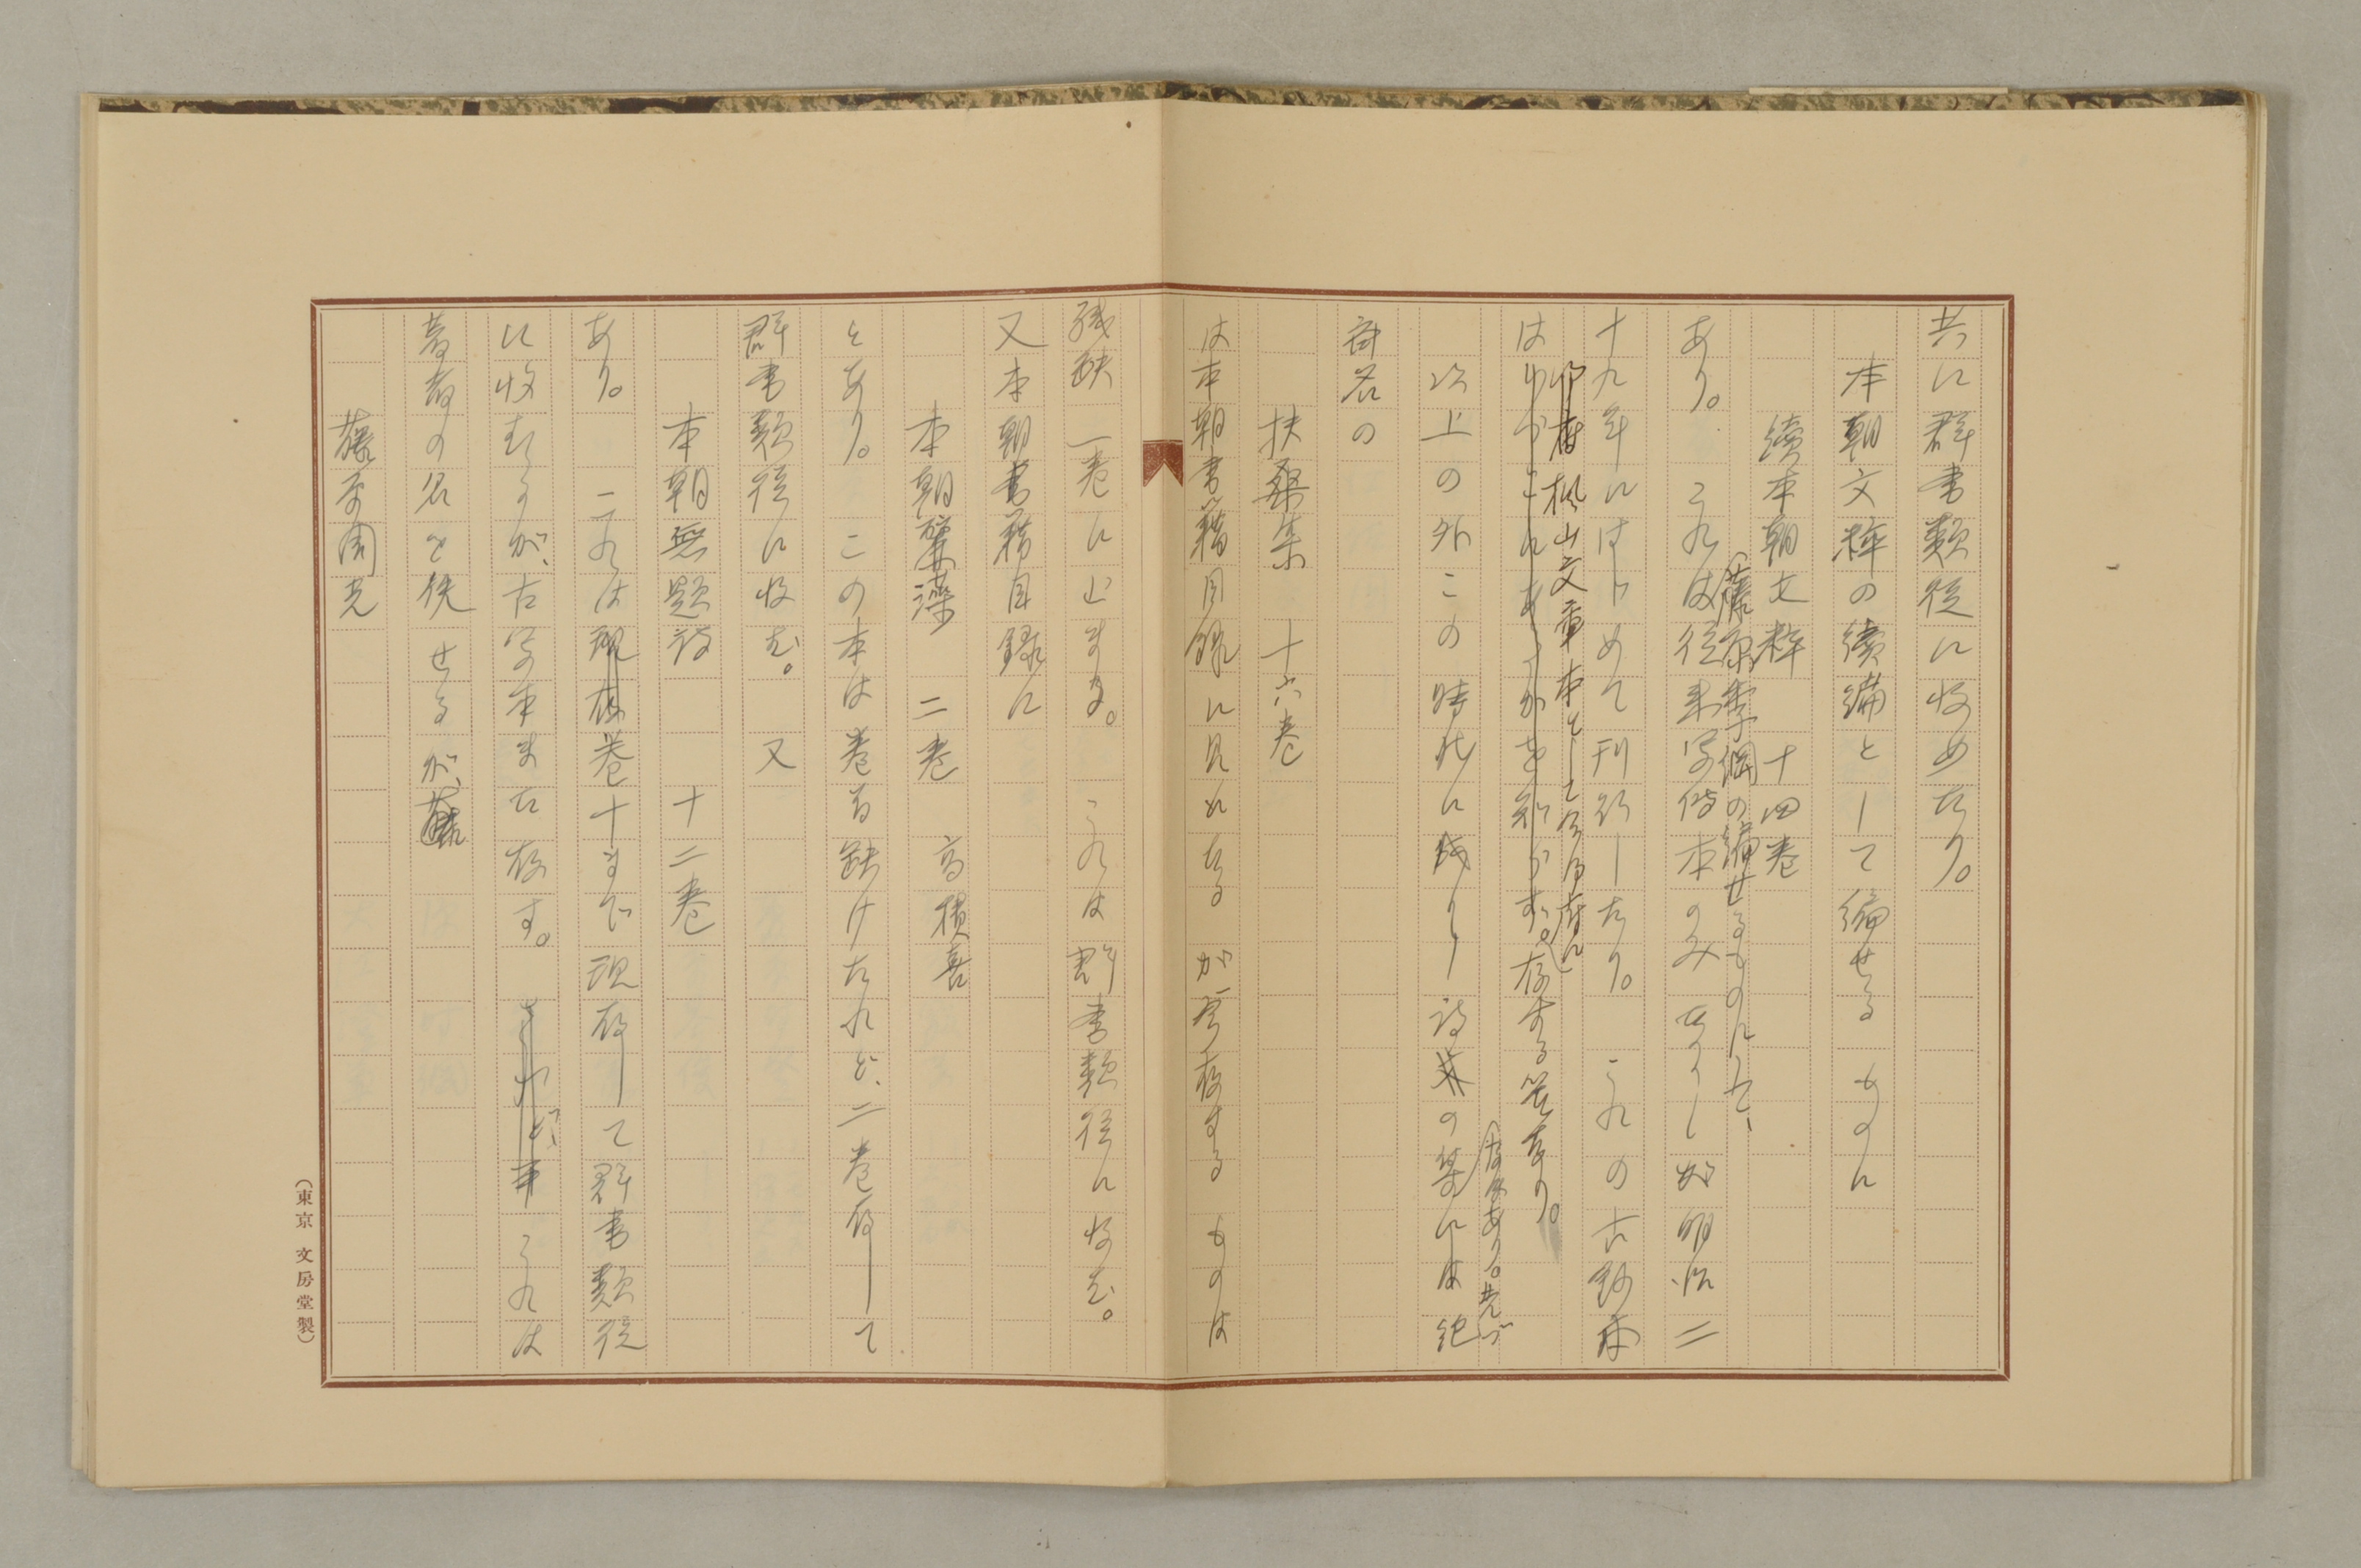 共に群書類従に収めたり。
本朝文粋の續編として編せるものに
續本朝文粋　十四巻
あり。これは
藤原季綱の編せるものにて、
従来写傳本のみなりしが明治二
十九年にはじめて刊行したり。これの古鈔本
はわづかにあるかを知らず。存する筈なり。
枫山文庫本として
以上の外この時代に成りし詩文の集には
存外あり。先づ
書名の
扶桑集　十六巻
は本朝書籍目録に見えたるが今存するものは
残缺一巻に止まる。これは群書類従に收む。
又本朝書籍目録に
本朝麗藻　二巻　高積善
とあり。この本は巻首缺けたれど、二巻存して
群書類従に收む。又
本朝無題詩　十二巻
あり。これは現存巻十まで現存して群書類従
に收むるが、古写本また存す。これは
著者の名を佚せるが、
藤原周光
（東京　文房堂製）